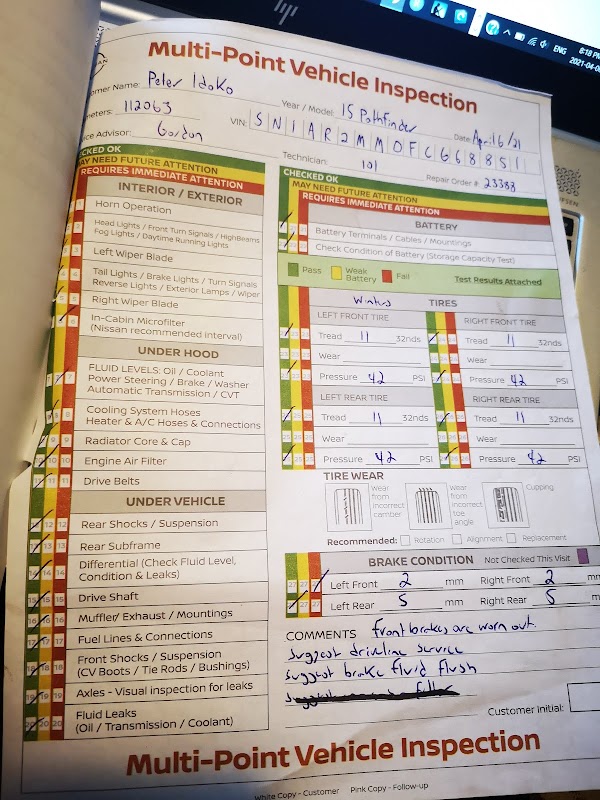 hp
ENG
8:18 PM
2021-04-0
Multi-Point Vehicle Inspection
omer Name: Peter Idoko
Year / Model: 15 Pathfinder
Date: April 6/21
meters: 112063
VIN: 5N1AR2MM0FC668851
ice Advisor: Gordon
Technician: 101
Repair Order #: 23383
CHECKED OK
MAY NEED FUTURE ATTENTION
REQUIRES IMMEDIATE ATTENTION
INTERIOR / EXTERIOR
Horn Operation
Head Lights / Front Turn Signals / HighBeams
Fog Lights / Daytime Running Lights
Left Wiper Blade
Tail Lights / Brake Lights / Turn Signals
Reverse Lights / Exterior Lamps / Wiper
Right Wiper Blade
In-Cabin Microfilter
(Nissan recommended interval)
UNDER HOOD
FLUID LEVELS: Oil / Coolant
Power Steering / Brake / Washer
Automatic Transmission / CVT
Cooling System Hoses
Heater & A/C Hoses & Connections
Radiator Core & Cap
Engine Air Filter
Drive Belts
UNDER VEHICLE
Rear Shocks / Suspension
Rear Subframe
Differential (Check Fluid Level,
Condition & Leaks)
Drive Shaft
Muffler/ Exhaust / Mountings
Fuel Lines & Connections
Front Shocks / Suspension
(CV Boots / Tie Rods / Bushings)
Axles - Visual inspection for leaks
Fluid Leaks
(Oil / Transmission / Coolant)
CHECKED OK
MAY NEED FUTURE ATTENTION
REQUIRES IMMEDIATE ATTENTION
BATTERY
Battery Terminals / Cables / Mountings
Check Condition of Battery (Storage Capacity Test)
Pass Weak Battery Fail Test Results Attached
Winters TIRES
LEFT FRONT TIRE RIGHT FRONT TIRE
Tread 11 32nds Tread 11 32nds
Wear Wear
Pressure 42 PSI Pressure 42 PSI
LEFT REAR TIRE RIGHT REAR TIRE
Tread 11 32nds Tread 11 32nds
Wear Wear
Pressure 42 PSI Pressure 42 PSI
TIRE WEAR
Wear from incorrect camber
Wear from incorrect toe angle
Cupping
Recommended: Rotation Alignment Replacement
BRAKE CONDITION Not Checked This Visit
Left Front 2 mm Right Front 2 mm
Left Rear 5 mm Right Rear 5 mm
COMMENTS front brakes are worn out.
suggest driveline service
suggest brake fluid flush
Customer Initial:
Multi-Point Vehicle Inspection
White Copy - Customer Pink Copy - Follow-up